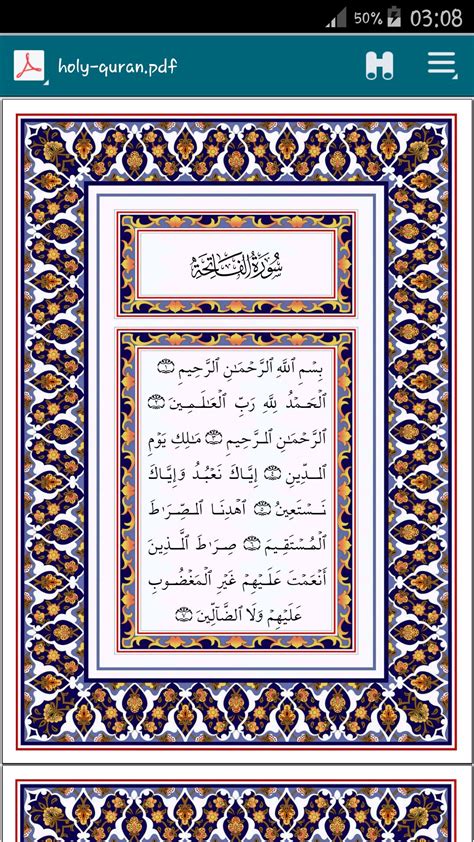 50% 03:08
holy-quran.pdf
سُورَةُ الفَاتِحَةِ
بِسۡمِ ٱللَّهِ ٱلرَّحۡمَٰنِ ٱلرَّحِيمِ ١
ٱلۡحَمۡدُ لِلَّهِ رَبِّ ٱلۡعَٰلَمِينَ ٢
ٱلرَّحۡمَٰنِ ٱلرَّحِيمِ ٣ مَٰلِكِ يَوۡمِ
ٱلدِّينِ ٤ إِيَّاكَ نَعۡبُدُ وَإِيَّاكَ
نَسۡتَعِينُ ٥ ٱهۡدِنَا ٱلصِّرَٰطَ
ٱلۡمُسۡتَقِيمَ ٦ صِرَٰطَ ٱلَّذِينَ
أَنۡعَمۡتَ عَلَيۡهِمۡ غَيۡرِ ٱلۡمَغۡضُوبِ
عَلَيۡهِمۡ وَلَا ٱلضَّآلِّينَ ٧